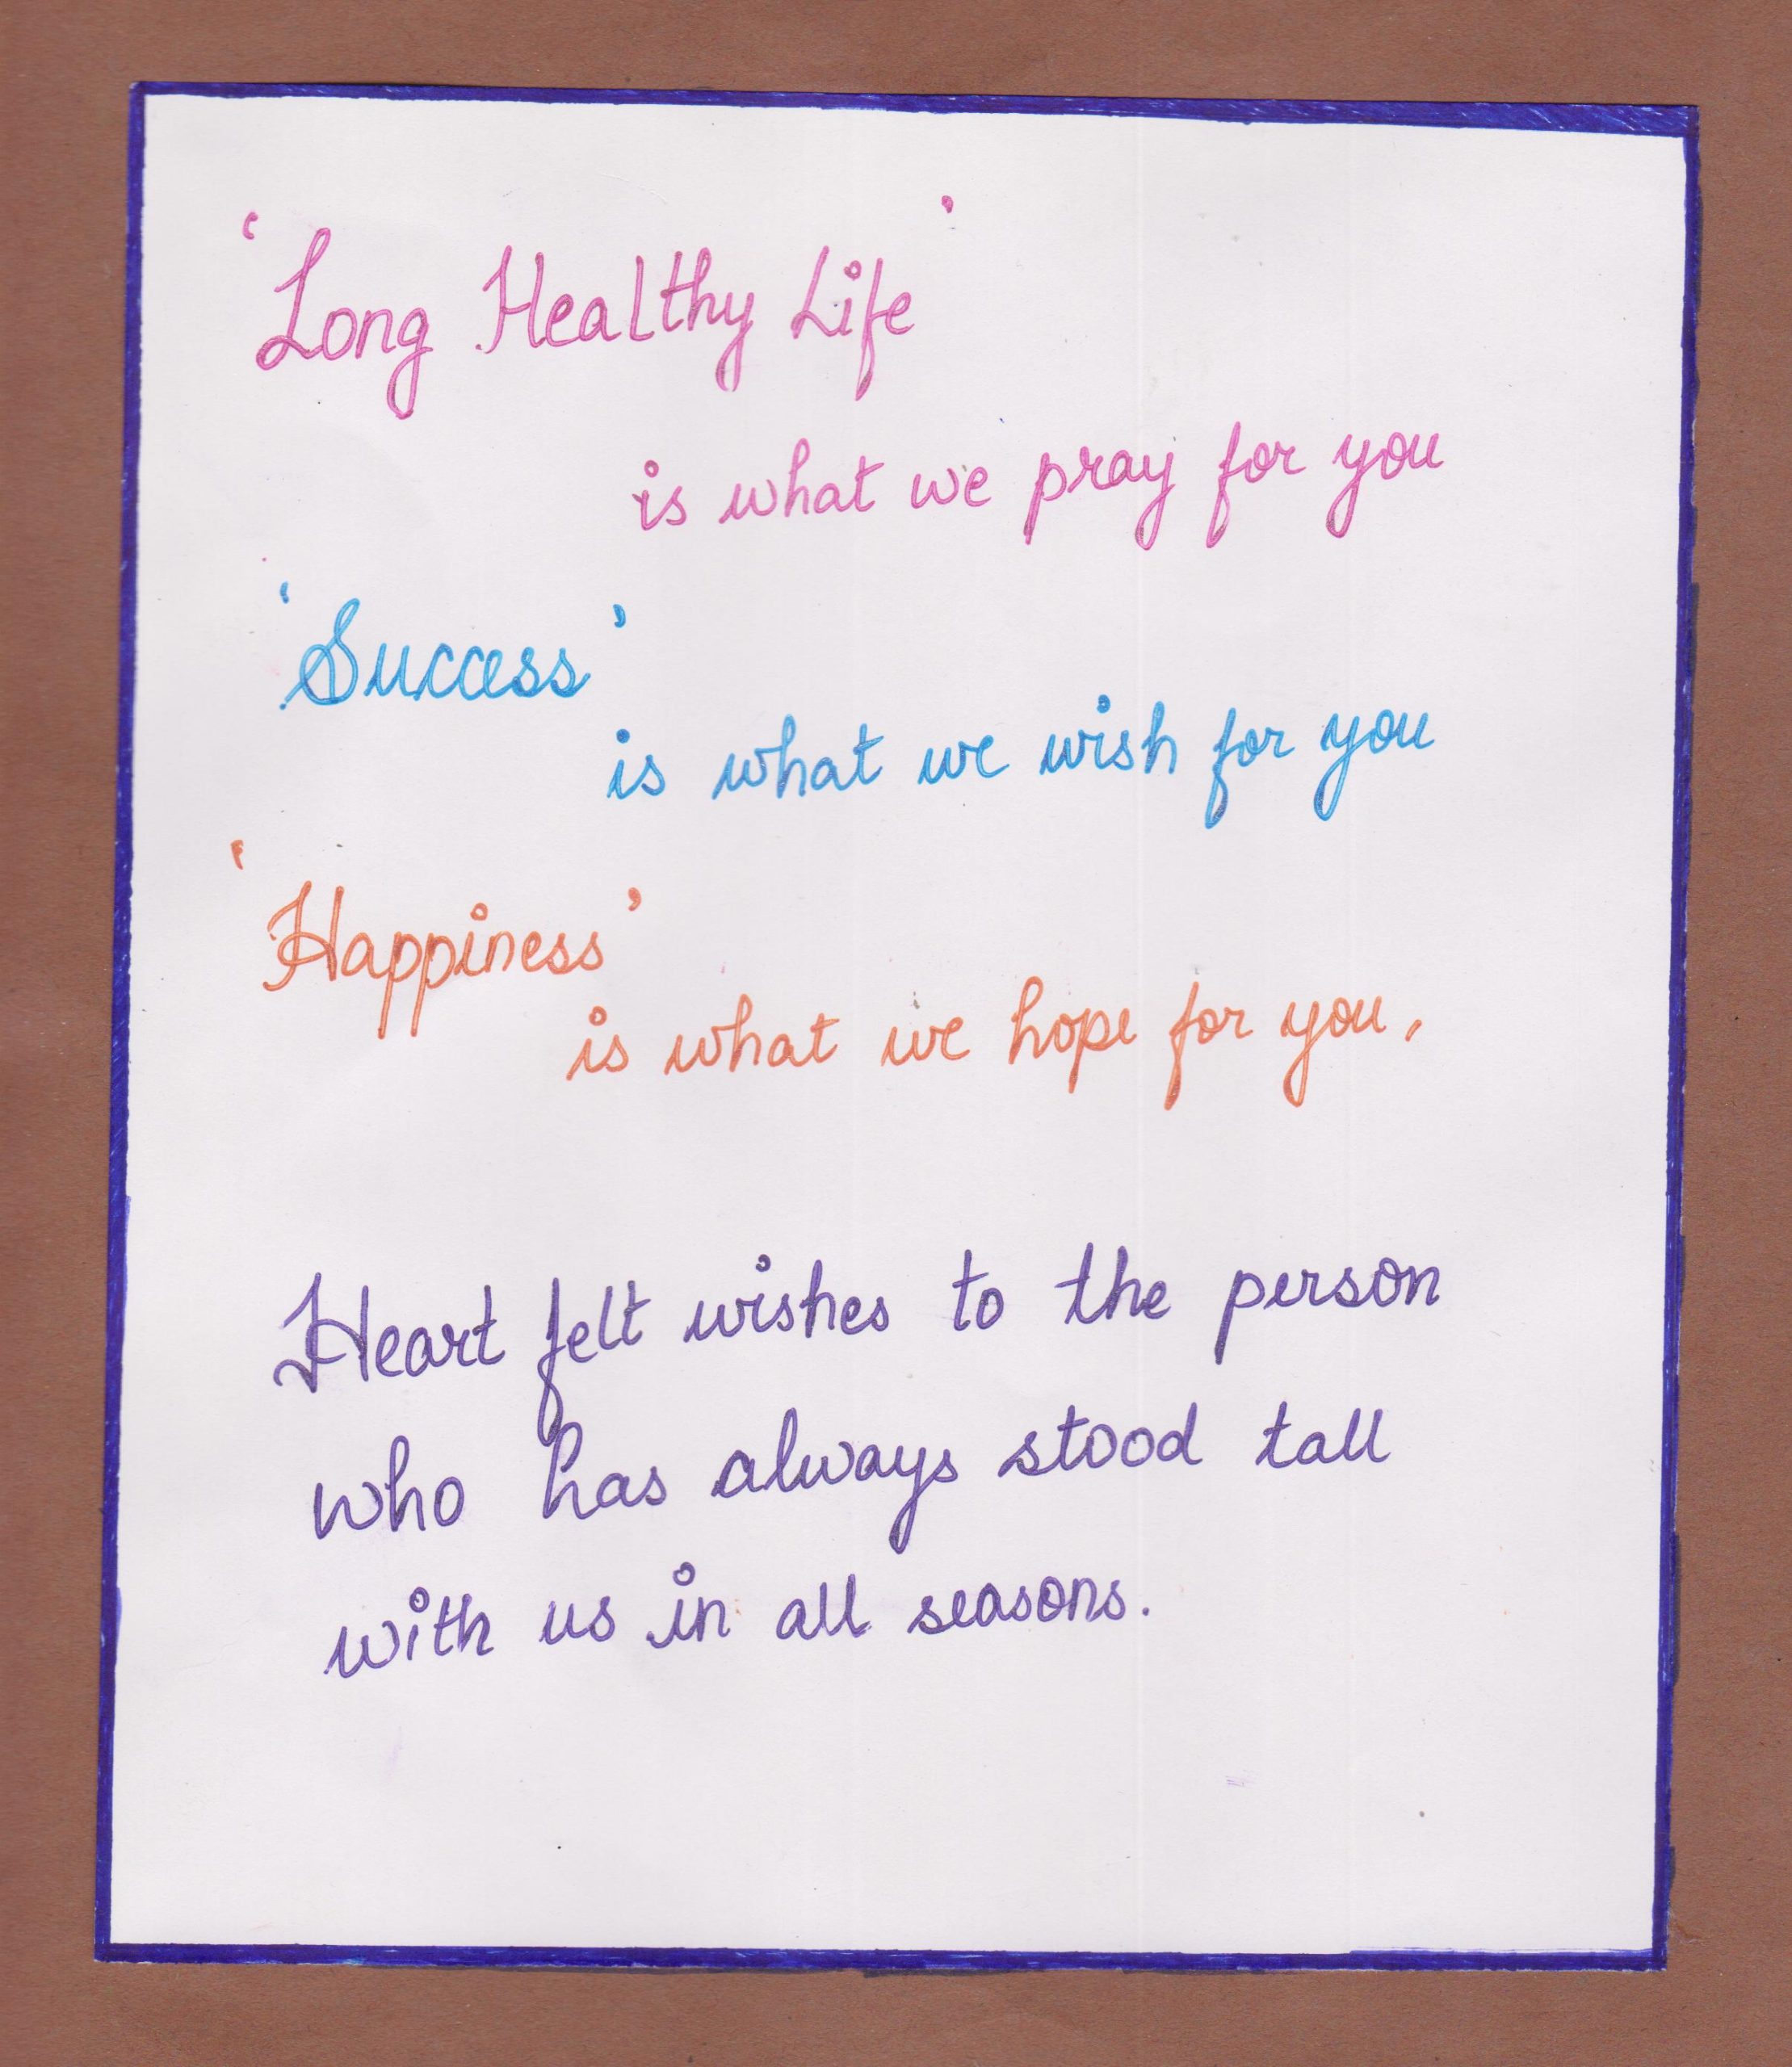 'Long Healthy Life'
is what we pray for you
'Success'
is what we wish for you
'Happiness'
is what we hope for you,
Heart felt wishes to the person
who has always stood tall
with us in all seasons.